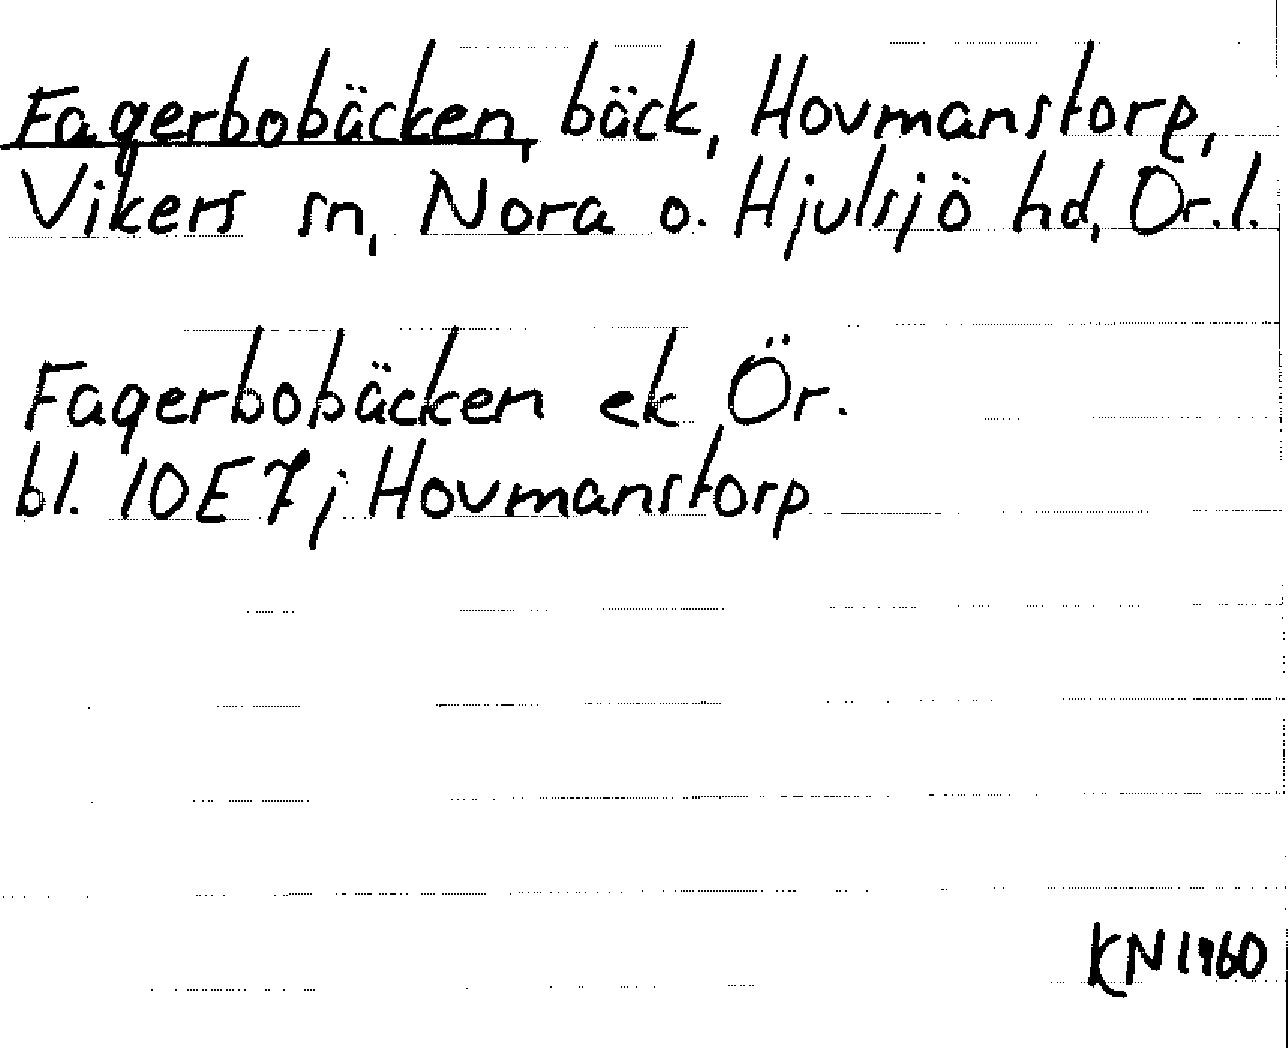 Fagerbobäcken, bäck, Hovmanstorp,
Vikers sn, Nora o. Hjulsjö hd, Ör.l.
Fagerbobäcken ek Ör.
bl. 10E7j Hovmanstorp
KN1960